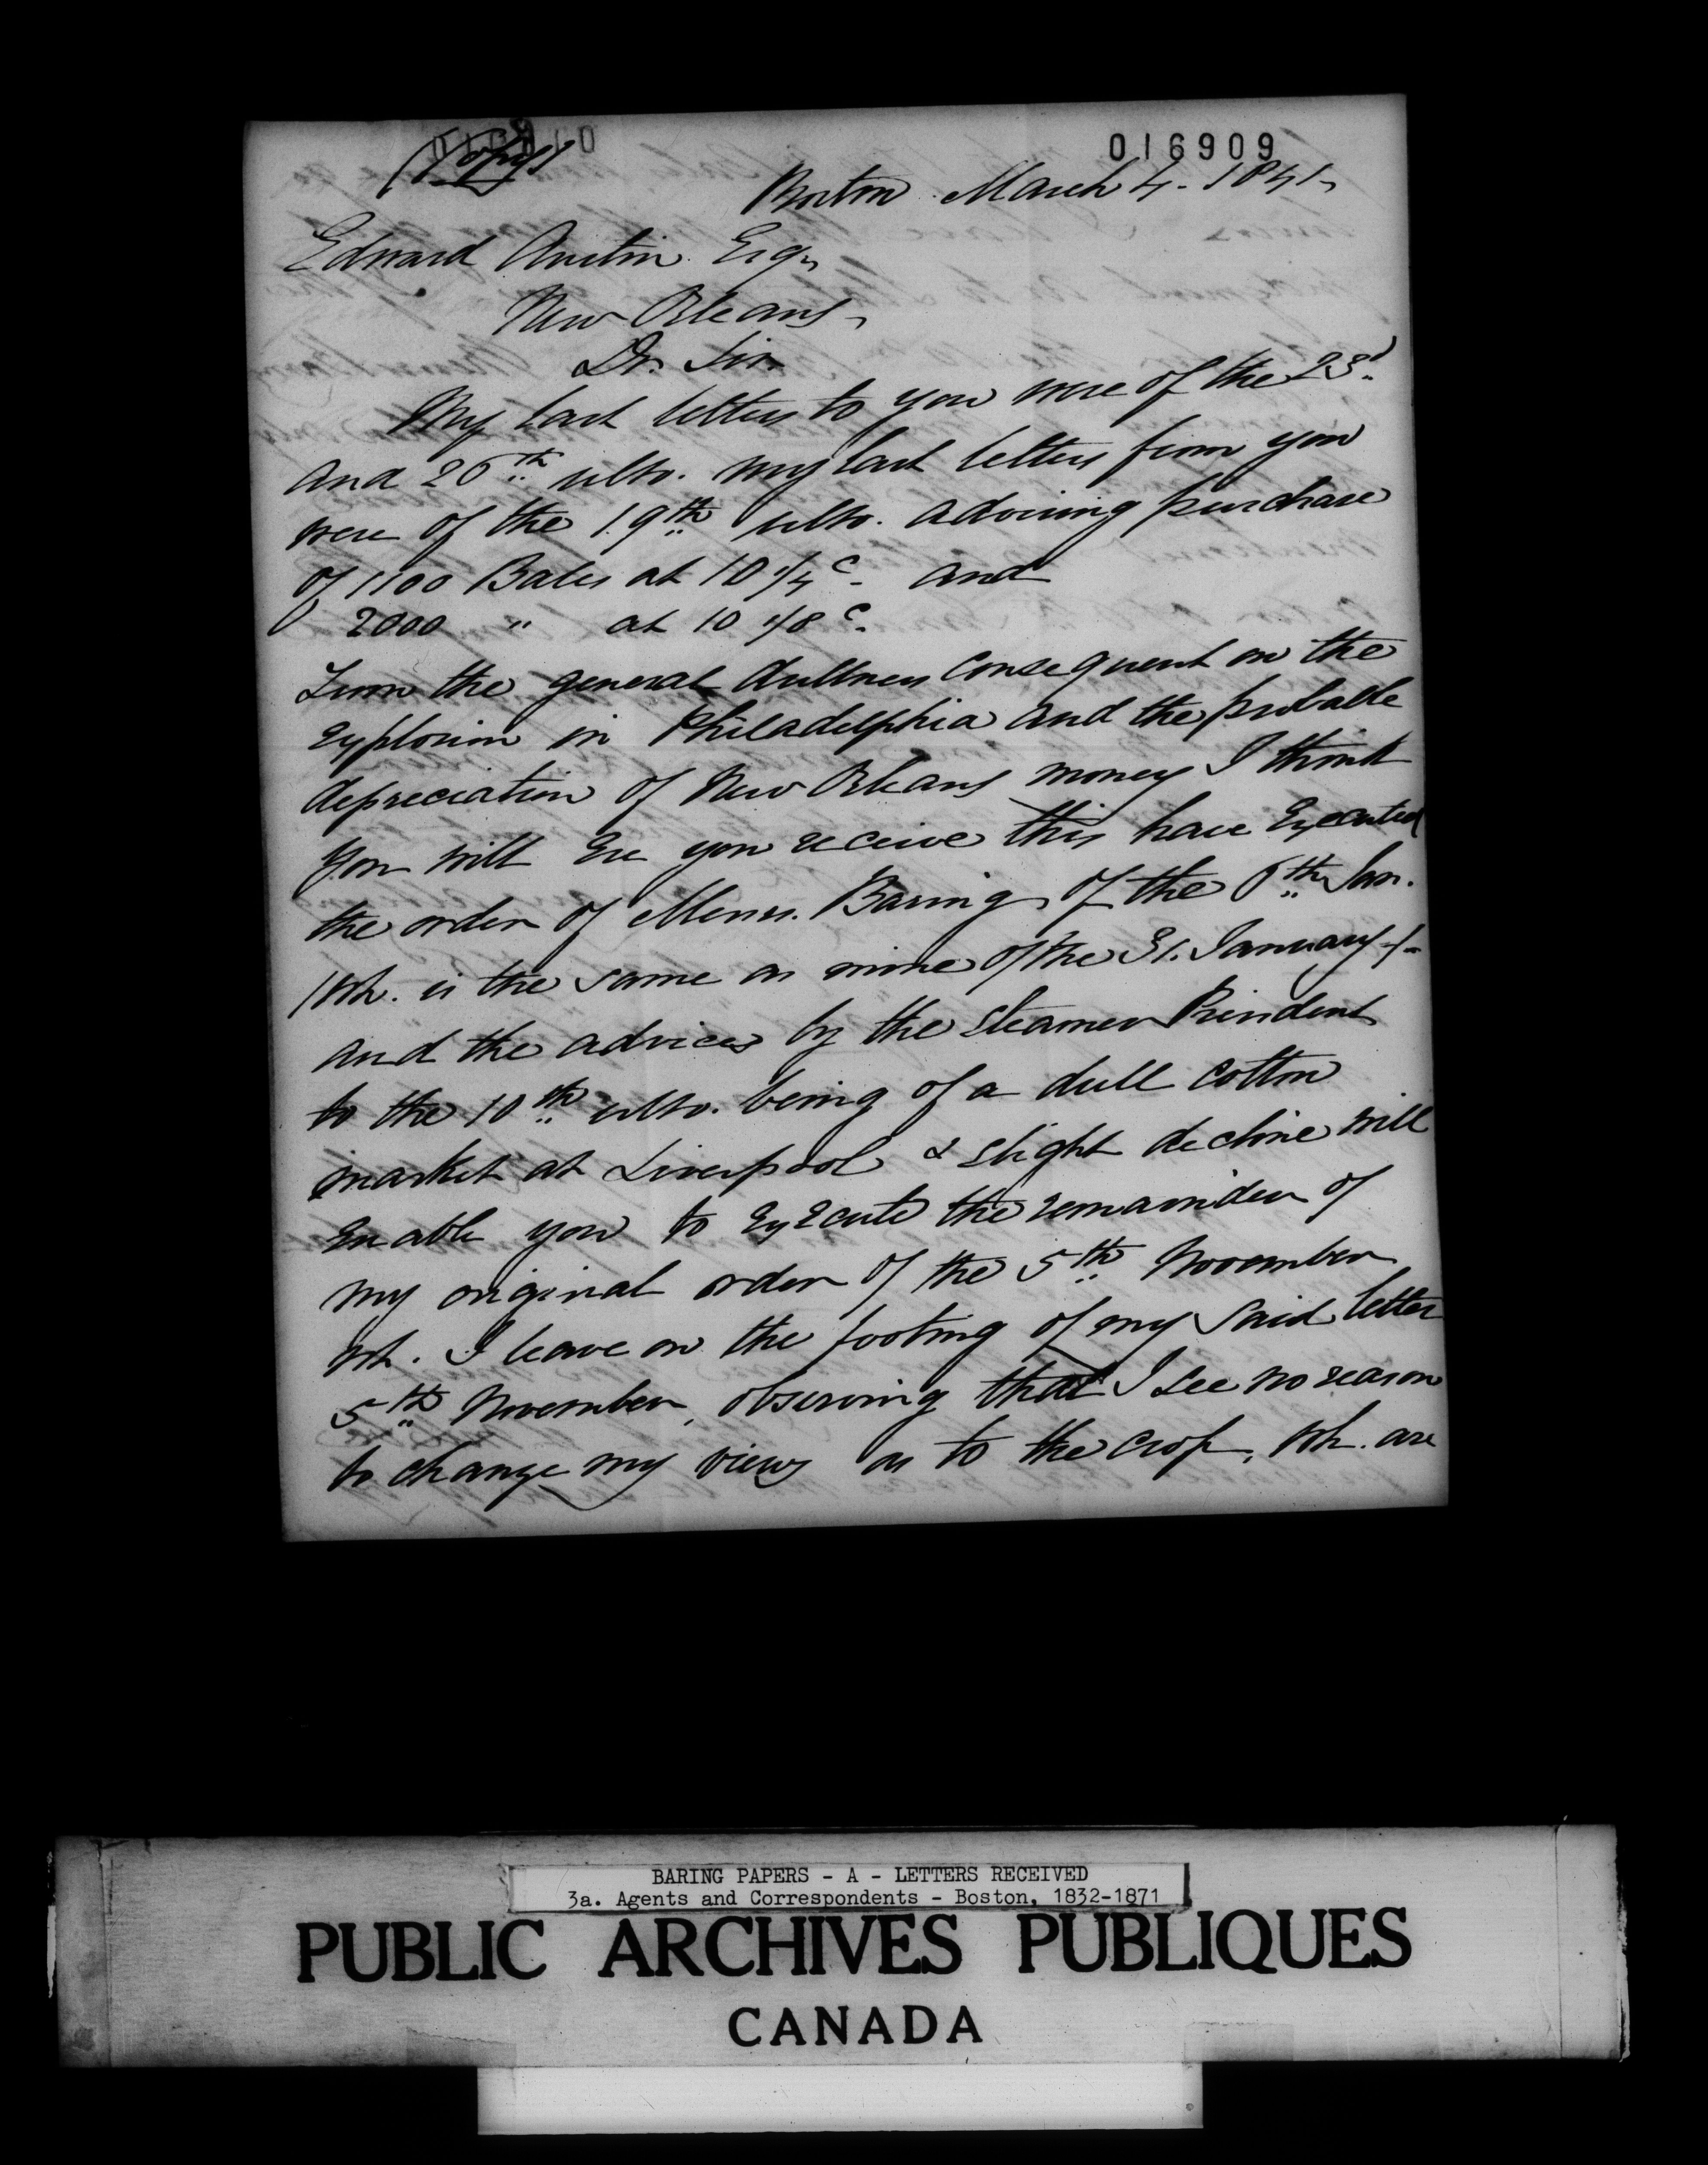 (Copy)
016909
Boston March 4. 1841.
Edward Austin Esq.
New Orleans,
Dr. Sir.
My last letters to you were of the 23d.
and 26th ulto. my last letters from you
were of the 19th ulto. advising purchase
of 1100 Bales at 10 1/4 c. and
2000 " at 10 1/8 c.
From the general dullness consequent on the
explosion in Philadelphia and the probable
depreciation of New Orleans money I think
you will ere you receive this have executed
the order of Messrs. Barings of the 6th Jan.
wh. is the same as mine of the 31. January
and the advices by the steamer President
to the 10th ulto. being of a dull cotton
market at Liverpool & slight decline will
enable you to execute the remainder of
my original order of the 5th November
wh. I leave on the footing of my said letter
5th November, observing that I see no reason
to change my views as to the crop, wh. are
BARING PAPERS - A - LETTERS RECEIVED
3a. Agents and Correspondents - Boston, 1832-1871
PUBLIC ARCHIVES PUBLIQUES
CANADA